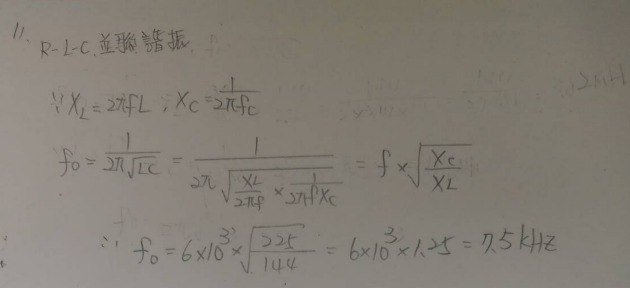 11.
R-L-C 並聯諧振
∵ X_L = 2πfL , X_C = 1/(2πfC)
f₀ = 1/(2π√(LC)) = 1/(2π√(XL/(2πf) × 1/(2πfXc))) = f × √(Xc/XL)
∵ f₀ = 6×10³ × √(225/144) = 6×10³ × 1.25 = 7.5 kHz